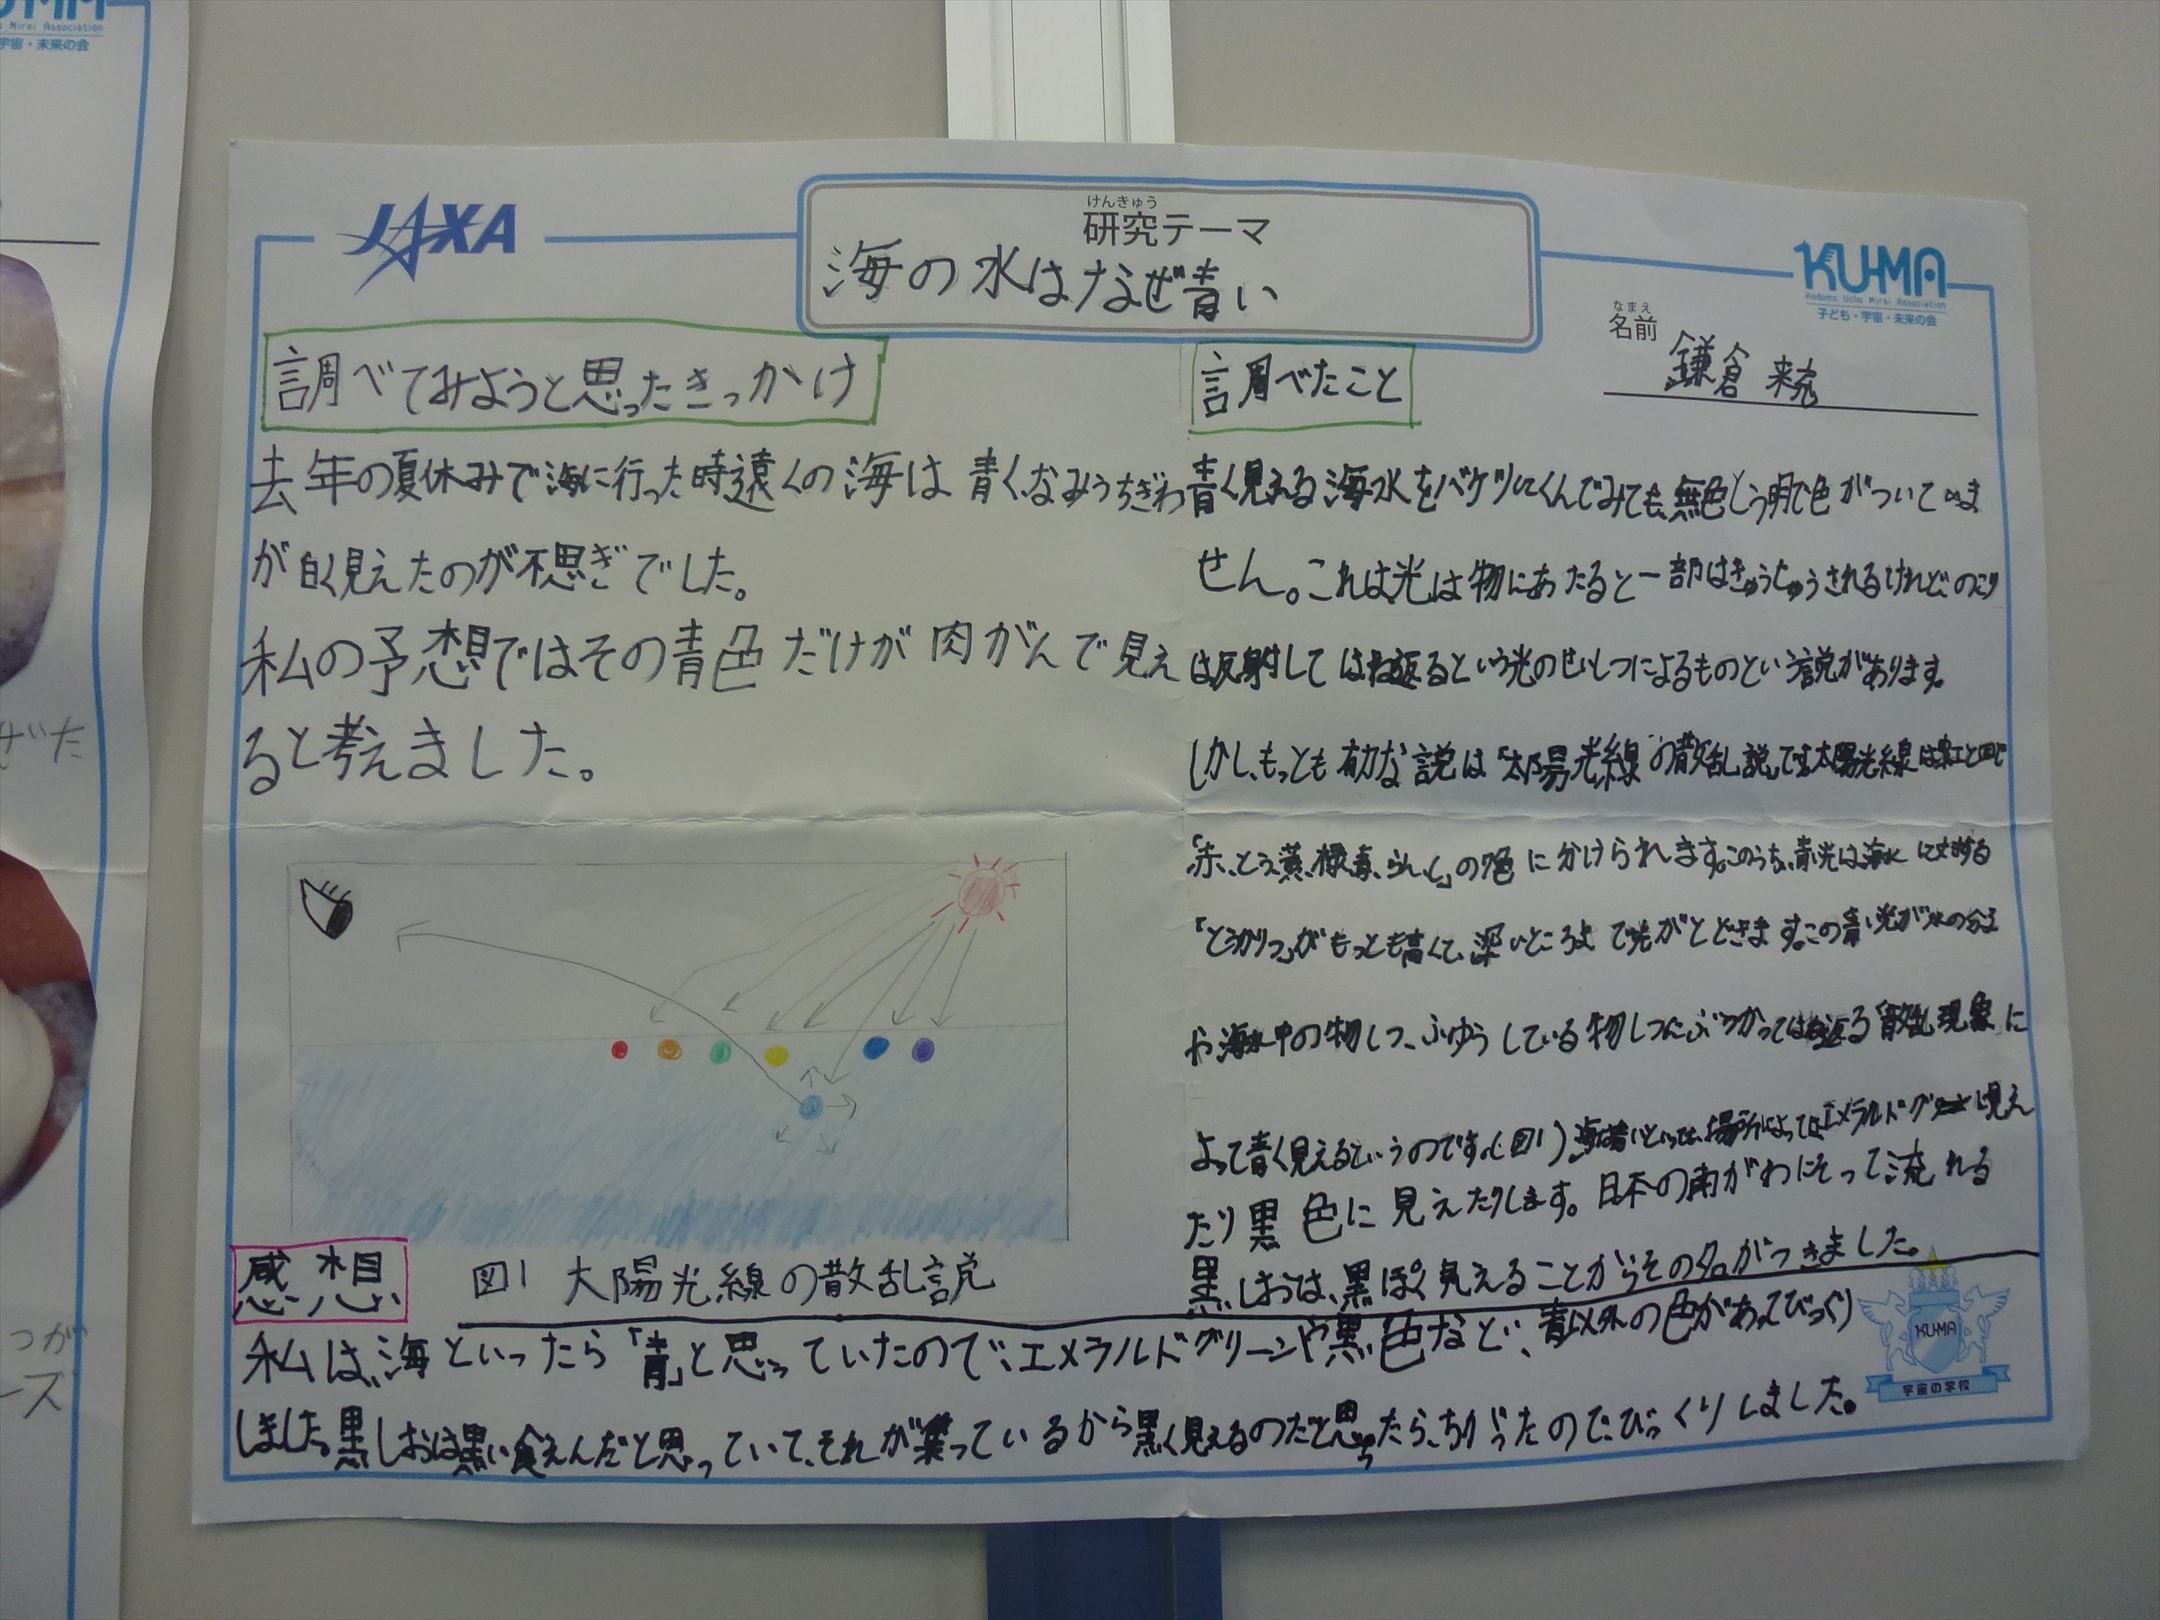 JAXA
けんきゅう
研究テーマ
海の水はなぜ青い
KU-MA
Kodomo Uchu Mirai Association
子ども・宇宙・未来の会
なまえ
名前
鎌倉
調べてみようと思ったきっかけ
去年の夏休みで海に行った時遠くの海は青く、なみうちぎわ
が白く見えたのが不思ぎでした。
私の予想ではその青色だけが肉がんで見え
ると考えました。
図1 太陽光線の散乱説
調べたこと
青く見える海水をバケツにくんでみても、無色とう明で色がついていま
せん。これは、光は物にあたると一部はきゅうしゅうされるけれど、のこり
は反射してはね返るという光のせいしつによるものという説があります。
しかし、もっとも有力な説は「太陽光線の散乱説」です。太陽光線は
「赤、とう、黄、緑、青、らん、し」の7色に分けられます。このうち、青い光は海水に対する
「とうかりつ」がもっとも高くて、深いところまで光がとどきます。この青い光が水の分子
や海水中の物しつ、ふゆうしている物しつにぶつかってはね返る「散乱現象」に
よって青く見えるというのです。(図1)海は青いといっても、場所によってはエメラルドグリーンに見え
たり黒色に見えたりします。日本の南がわにそって流れる
黒しおは、黒ぽく見えることからその名がつきました。
感想
私は、海といったら「青」と思っていたので、エメラルドグリーンや黒色など、青以外の色があってびっくり
しました。黒しおは黒い食えんだと思っていて、それが集っているから黒く見えるのだと思ったら、ちがったので、びっくりしました。
KU-MA
宇宙の学校
Mirai Association
宇宙・未来の会